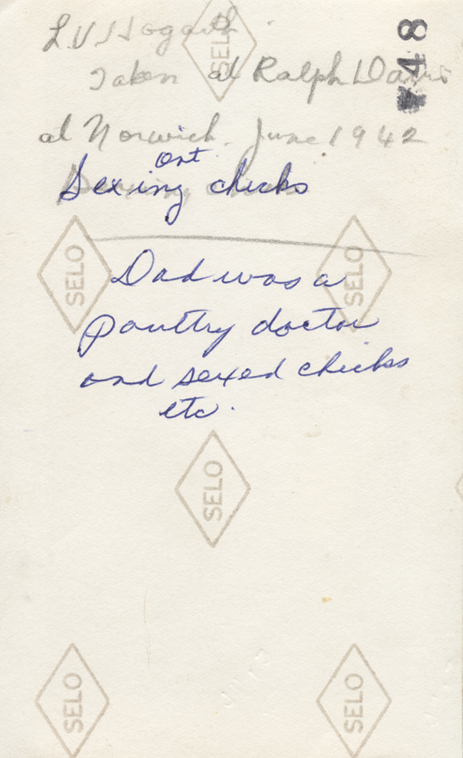 L V Hogarth
Taken at Ralph Davis
at Norwich. June 1942
Ont.
Sexing chicks
Dad was a
poultry doctor
and sexed chicks
etc.
48
SELO
SELO
SELO
SELO
SELO
SELO